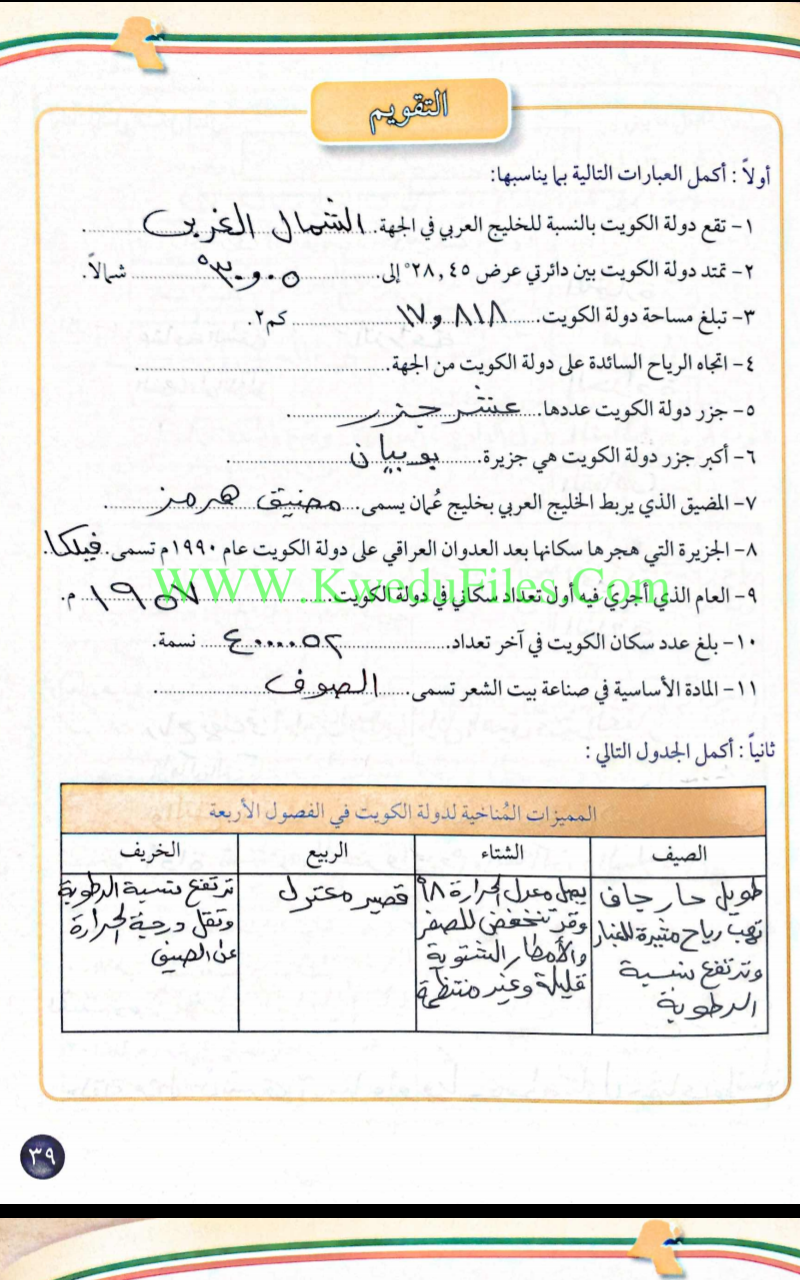 التقويم
أولاً : أكمل العبارات التالية بما يناسبها:
١- تقع دولة الكويت بالنسبة للخليج العربي في الجهة. الشمال الغربي
٢- تمتد دولة الكويت بين دائرتي عرض ٢٨,٤٥° إلى. ٣٠,٠٥° شمالاً.
٣- تبلغ مساحة دولة الكويت. ١٧,٨١٨ كم٢.
٤- اتجاه الرياح السائدة على دولة الكويت من الجهة.
٥- جزر دولة الكويت عددها. عشر جزر
٦- أكبر جزر دولة الكويت هي جزيرة. بوبيان
٧- المضيق الذي يربط الخليج العربي بخليج عُمان يسمى. مضيق هرمز
٨- الجزيرة التي هجرها سكانها بعد العدوان العراقي على دولة الكويت عام ١٩٩٠م تسمى. فيلكا.
WWW.KweduFiles.Com
٩- العام الذي أجري فيه أول تعداد سكاني في دولة الكويت. ١٩٥٧ م.
١٠- بلغ عدد سكان الكويت في آخر تعداد. نسمة.
١١- المادة الأساسية في صناعة بيت الشعر تسمى. الصوف
ثانياً : أكمل الجدول التالي :
المميزات المُناخية لدولة الكويت في الفصول الأربعة
الصيف الشتاء الربيع الخريف
طويل حار جاف
تهب رياح مثيرة للغبار
وترتفع نسبة
الرطوبة
يصل معدل الحرارة ٨°
وقد تنخفض للصفر
والأمطار الشتوية
قليلة وغير منتظمة
قصير معتدل
ترتفع نسبة الرطوبة
وتقل درجة الحرارة
عن الصيف
٣٩